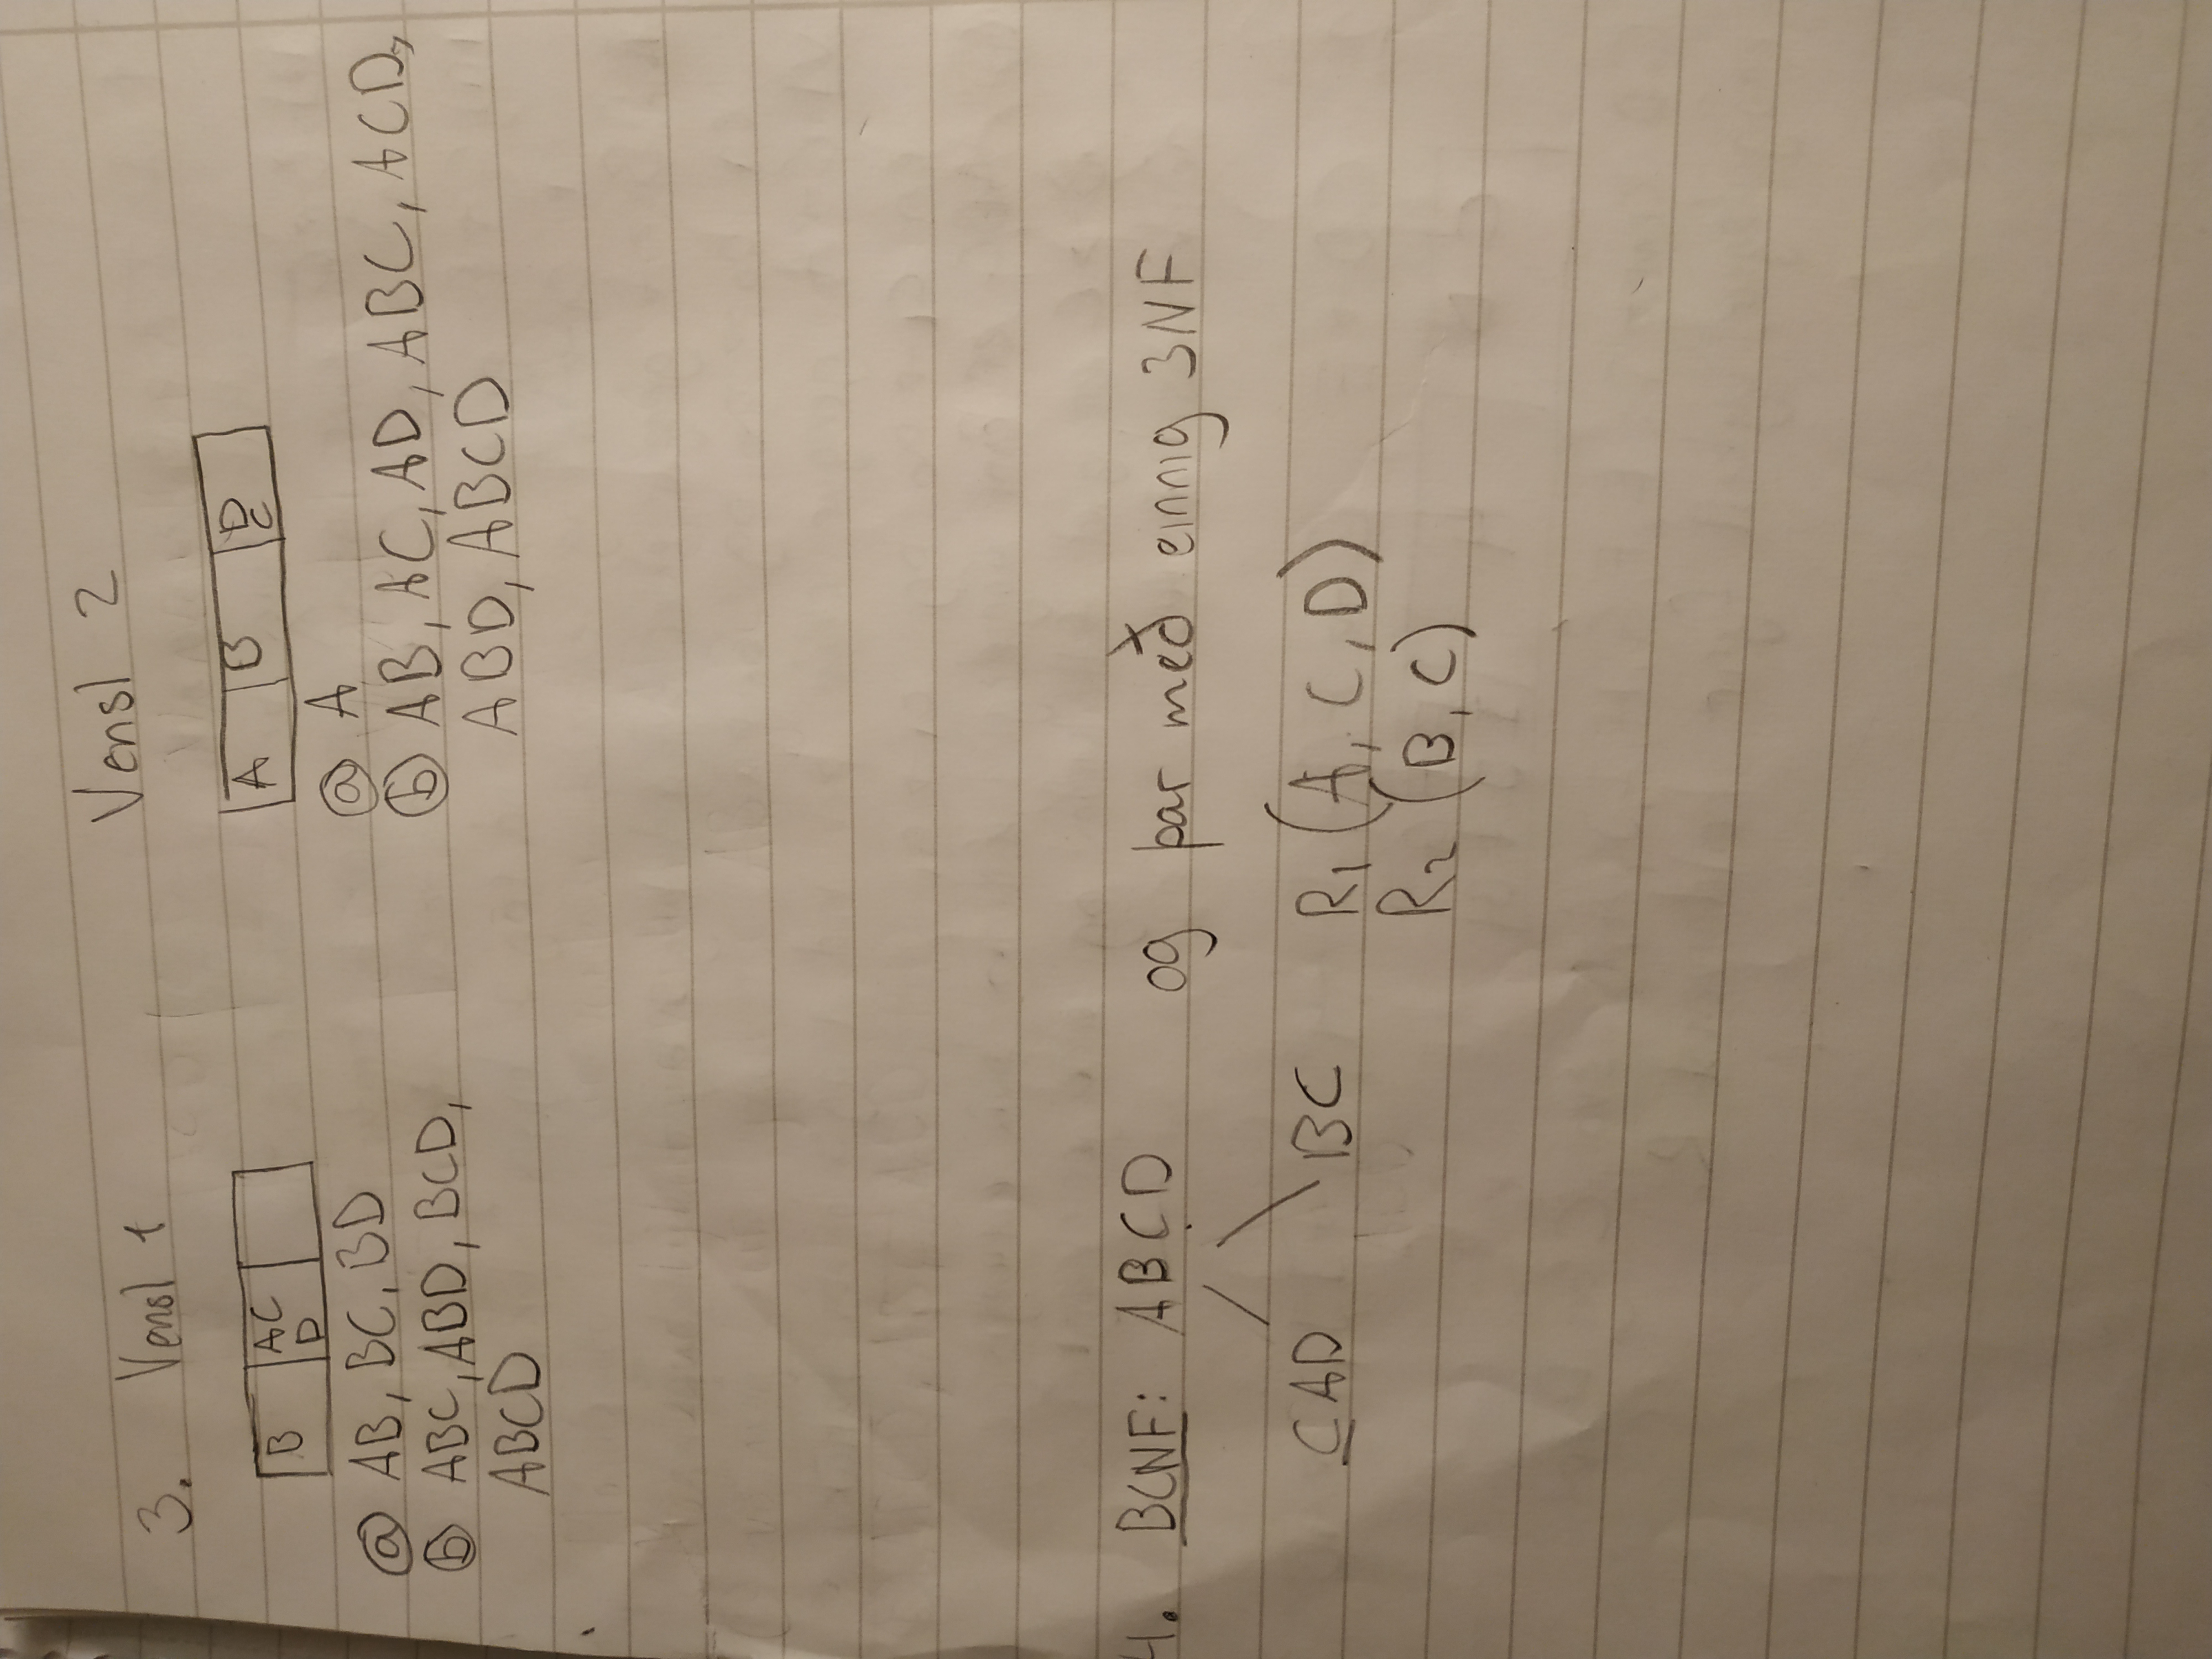 3. Vensl 1
B
AC
D
ⓐ AB, BC, BD
ⓑ ABC, ABD, BCD,
ABCD
Vensl 2
A
B
D
C
ⓐ A
ⓑ AB, AC, AD, ABC, ACD,
ABD, ABCD
4. BCNF: ABCD og þar með einnig 3NF
CAD BC R₁(A, C, D)
R₂(B, C)